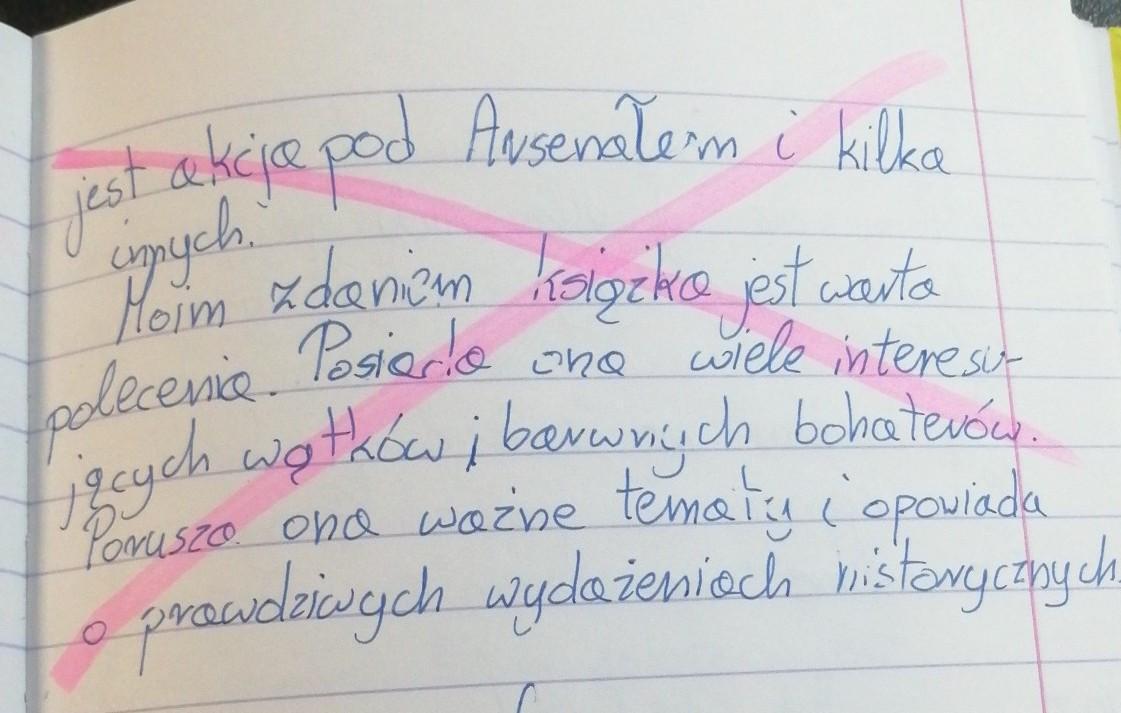 jest akcja pod Arsenałem i kilka
innych.
Moim zdaniem książka jest warta
polecenia. Posiada ona wiele interesu-
jących wątków i barwnych bohaterów.
Porusza ona ważne tematy i opowiada
o prawdziwych wydażeniach historycznych